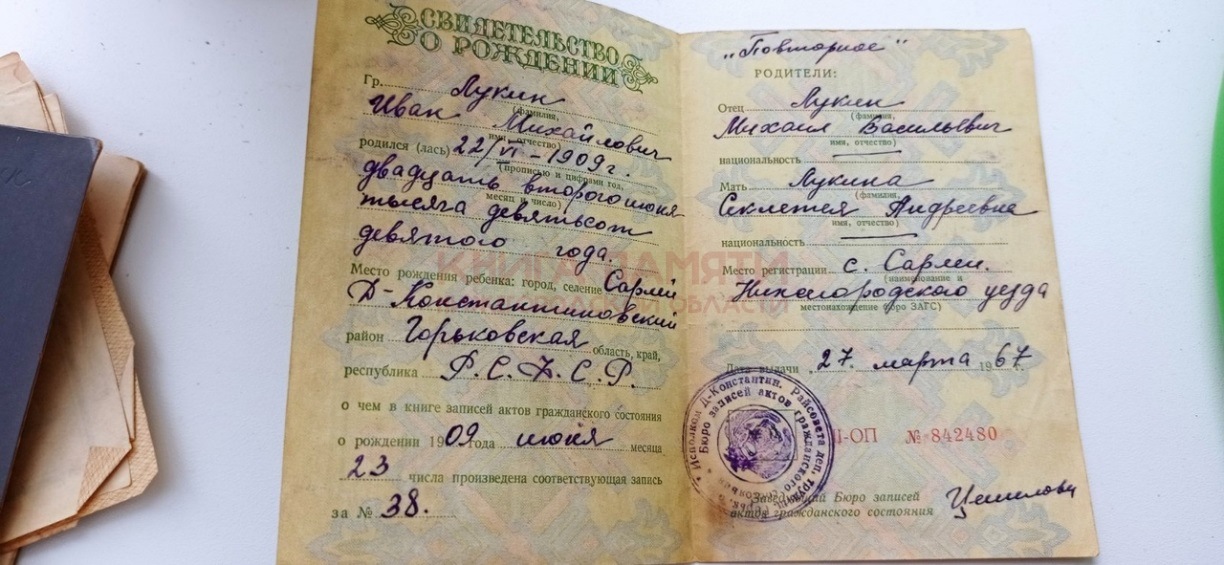 СВИДЕТЕЛЬСТВО
О РОЖДЕНИИ
Гр. Лукин
(фамилия,
Иван Михайлович
имя, отчество)
родился (лась) 22/VI - 1909 г.
(прописью и цифрами год,
двадцать второго июня
месяц и число)
тысяча девятьсот
девятого года.
Место рождения ребенка: город, селение Сарлей
Д-Константиновский
район Горьковская область, край,
республика Р.С.Ф.С.Р.
о чем в книге записей актов гражданского состояния
о рождении 1909 года июня месяца
23 числа произведена соответствующая запись
за № 38.
"Повторное"
РОДИТЕЛИ:
Отец Лукин
(фамилия,
Михаил Васильевич
имя, отчество)
национальность —
Мать Лукина
(фамилия,
Секлетея Андреевна
имя, отчество)
национальность —
Место регистрации с. Сарлеи.
(наименование и
Нижегородского уезда
местонахождение бюро ЗАГС)
Дата выдачи 27. марта 1967 г.
I-ОП № 842480
Заведующий Бюро записей
актов гражданского состояния
Исполком Д-Константин. Райсовета деп. труд.
Бюро записей актов гражданского
КНИГА ПАМЯТИ
ОБЛАСТИ